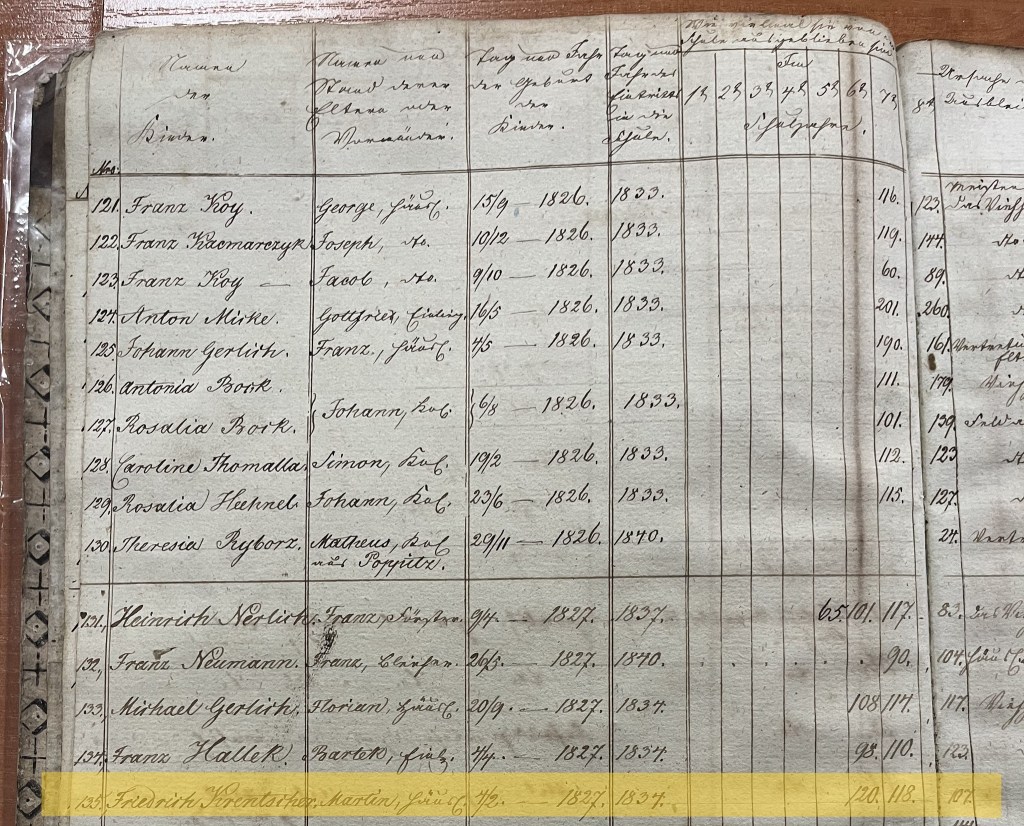 Namen der Kinder.
Namen und Stand derer Eltern oder Vormünder.
Tag und Jahr der Geburt der Kinder.
Tag und Jahr des Eintritts in die Schule.
Wie vielmal sie von der Schule ausgeblieben sind
Im
1t 2t 3t 4t 5t 6t 7t 8t
Schuljahre.
Ursache
Nro.
121. Franz Koy. George, Häusl. 15/9 — 1826. 1833. 116. 123. das Vieh
122. Franz Kacmarczyk Joseph, dto. 10/12 — 1826. 1833. 119. 144.
123. Franz Koy — Jacob, dto. 9/10 — 1826. 1833. 60. 89.
124. Anton Mirke. Gottfried, Einlieg. 16/5 — 1826. 1833. 201. 260.
125. Johann Gerlich. Franz, Häusl. 4/5 — 1826. 1833. 190. 161.
126. Antonia Bork. 111. 179.
Johann, Kol. 6/8 — 1826. 1833.
127. Rosalia Bork. 101. 139.
128. Caroline Thomalla. Simon, Kol. 19/2 — 1826. 1833. 112. 123
129. Rosalia Hechnel. Johann, Kol. 23/6 — 1826. 1833. 115. 127.
130. Theresia Ryborz. Matheus, Kol. 29/11 — 1826. 1840. 24.
aus Poppitz.
131. Heinrich Nerlich. Franz, Förster. 9/4. — 1827. 1837. 65. 101. 117. 83.
132. Franz Neumann. Franz, Bleicher. 26/5. 1827. 1840. 90. 104.
133. Michael Gerlich. Florian, Häusl. 20/9. — 1827. 1834. 108. 114. 117.
134. Franz Hallek. Bartek, Einl. 4/4. — 1827. 1834. 98. 110. 123
135. Friedrich Krentscher. Martin, Häusl. 7/2. 1827. 1834. 120. 118. 107.